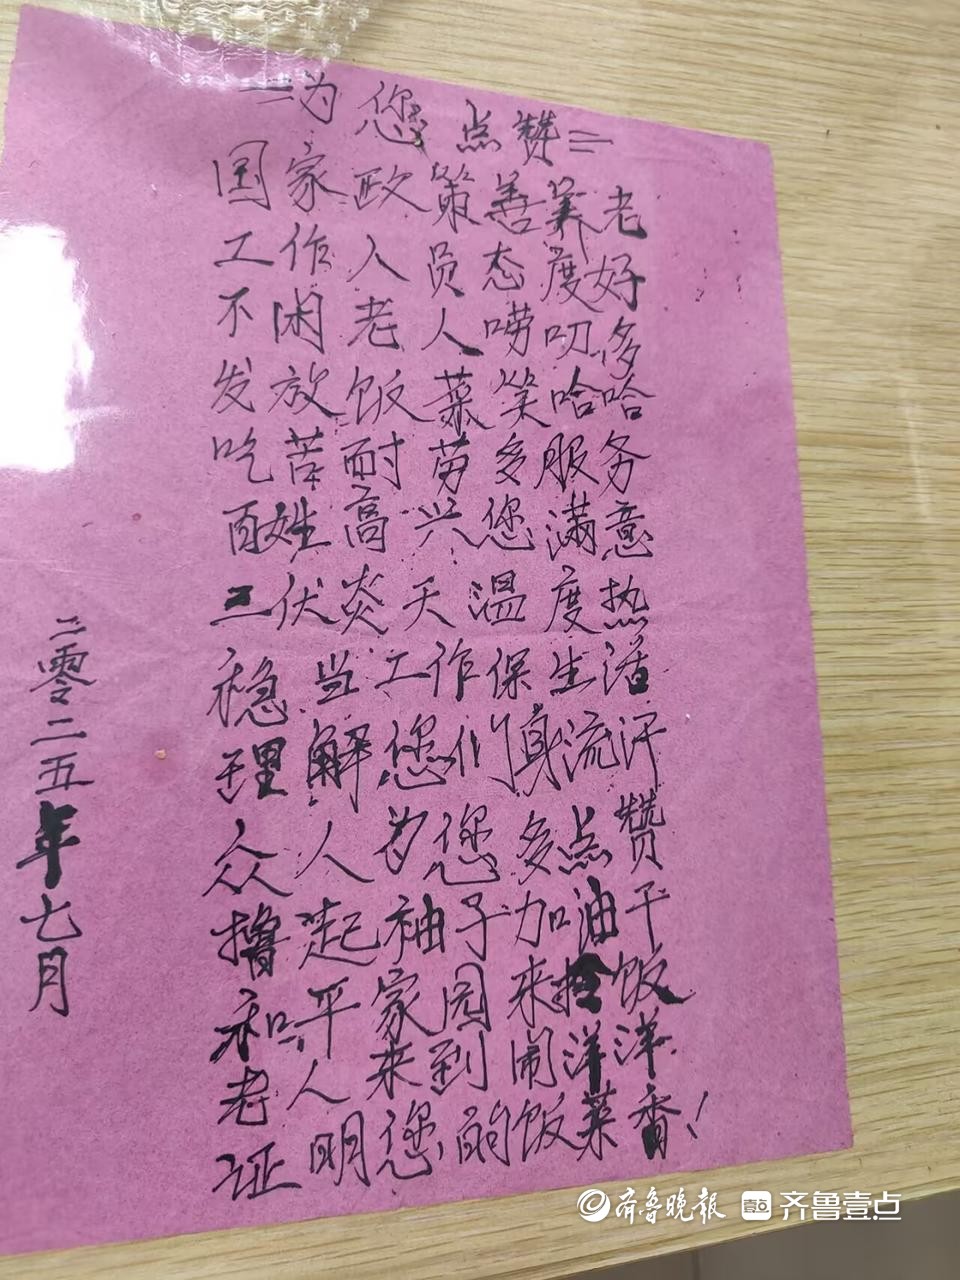 二为您点赞二
国家政策善养老
工作人员态度好
不闲老人唠叨多
发放饭菜笑哈哈
吃苦耐劳多服务
百姓高兴您满意
三伏炎天温度热
稳当工作保生活
理解您们身流汗
众人为您多点赞
撸起袖子加油干
和平家园来抢饭
老人来到闹洋洋
证明您的饭菜香！
二零二五年七月
齐鲁晚报 壹点 齐鲁壹点